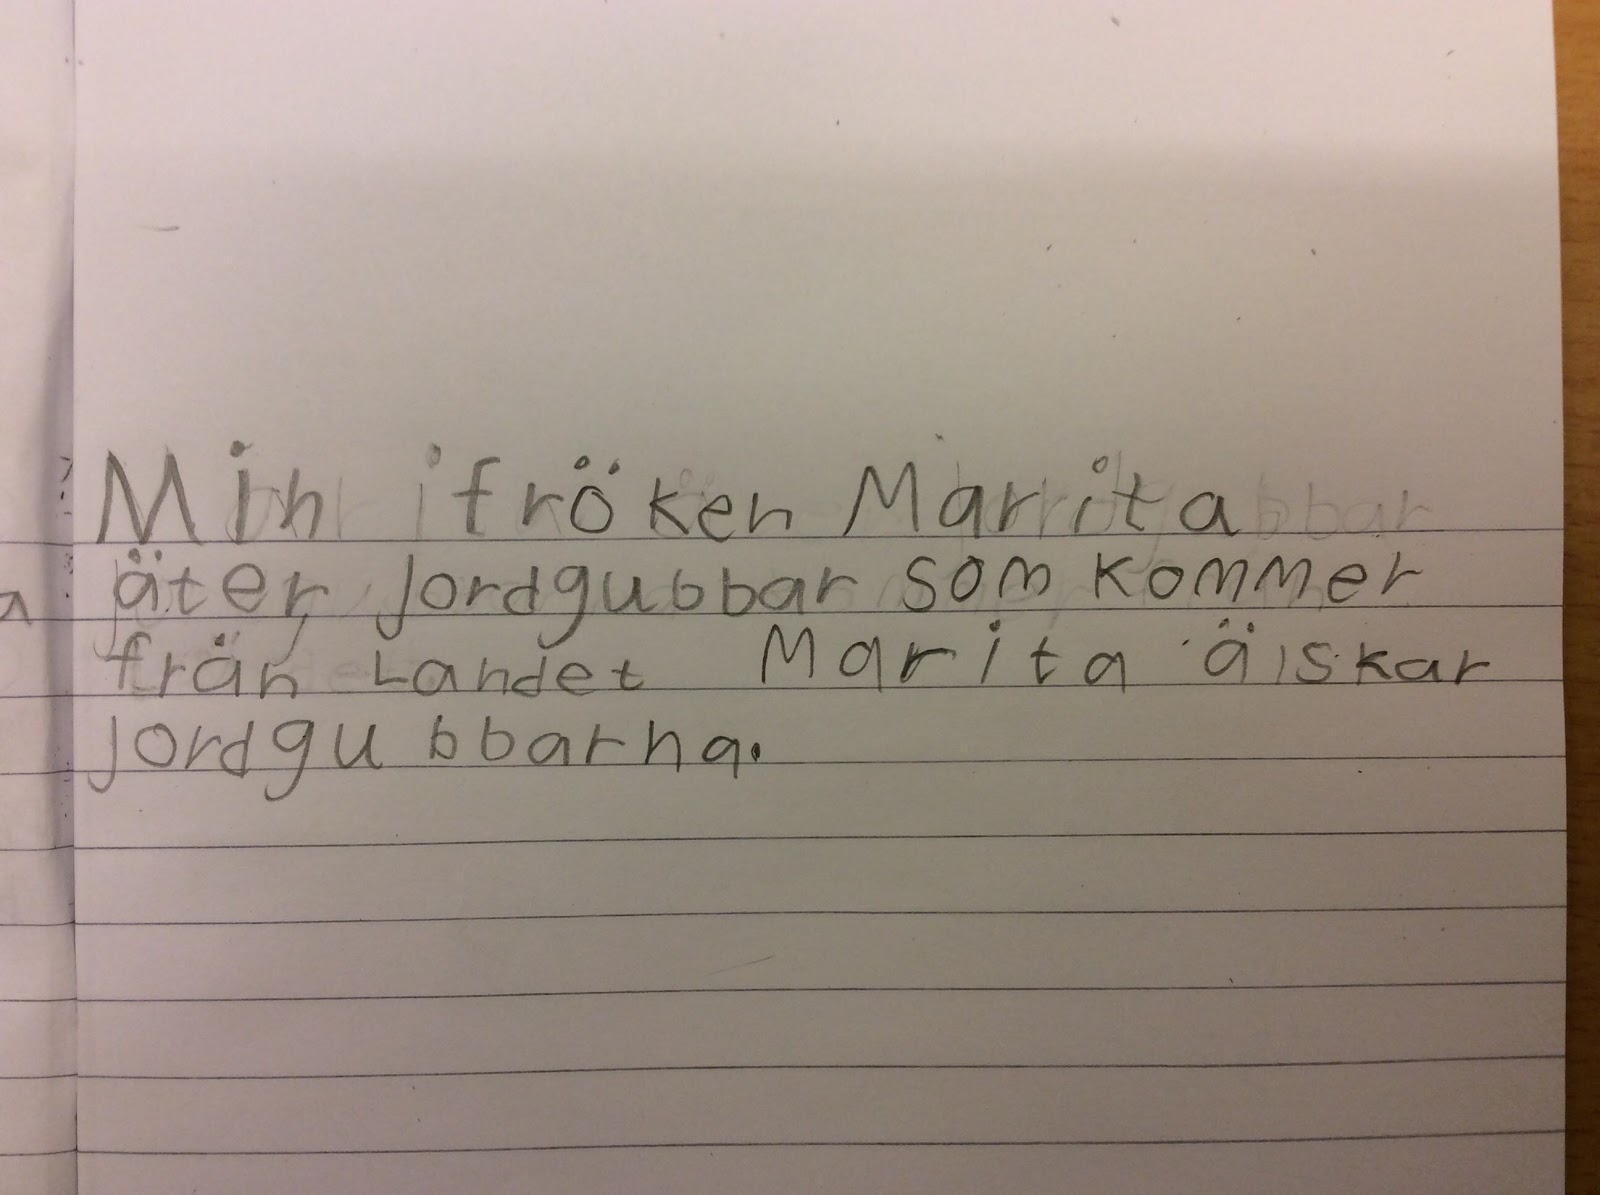 Min fröken Marita
äter jordgubbar som kommer
frän Landet Marita älskar
jordgu bbarna.